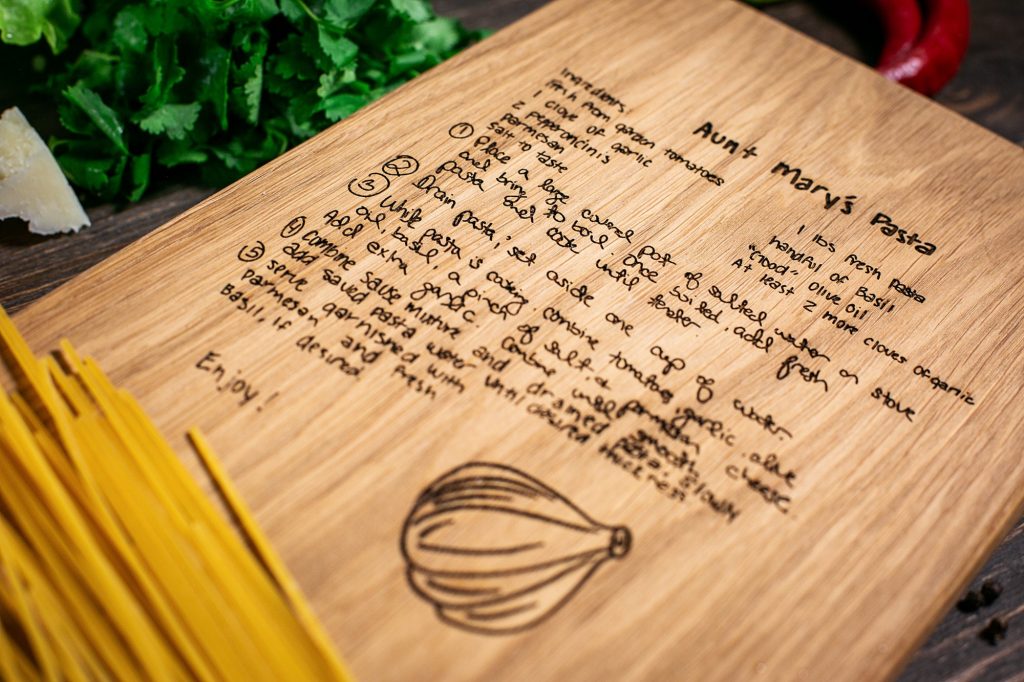 Aunt Mary's Pasta
Ingredients,
from garden tomatoes
1 clove of garlic
2 peperoncinis
parmesan
salt to taste
1 lbs fresh pasta
handful of Basil
"Good" Olive Oil
At least 2 more cloves of garlic
① Place a large covered pot of salted water on stove
and bring to boil. Once boiled, add fresh
pasta and cook until tender
② Drain pasta, set aside one cup of water.
③ While pasta is cooking combine tomatoes, garlic, olive
oil, basil, a pinch of salt & parmesan cheese.
Add extra garlic. Combine until smooth
④ Combine sauce mixture and drained pasta, slowly
add saved pasta water until desired thickness
⑤ Serve garnished with
parmesan and fresh
Basil, if desired.
Enjoy!